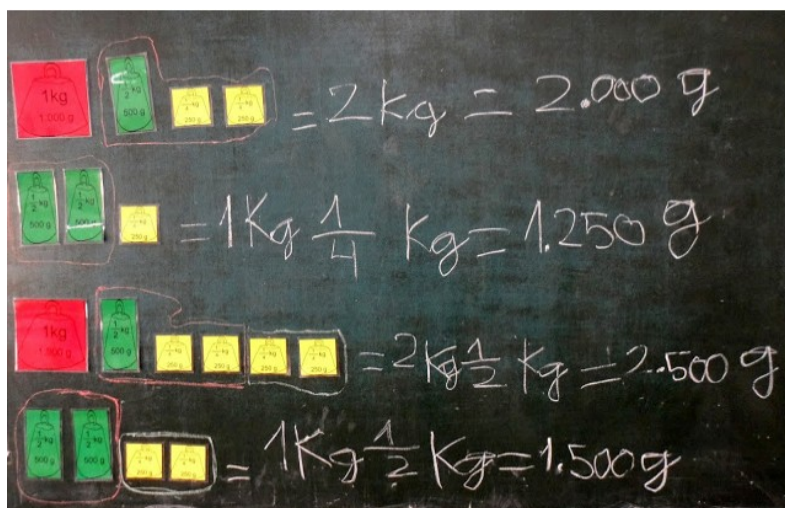 1kg 1.000 g ½ kg 500 g ¼ kg 250 g ¼ kg 250 g = 2 Kg = 2.000 g
½ kg 500 g ½ kg 500 g ¼ kg 250 g = 1 Kg 1/4 Kg = 1.250 g
1kg 1.000 g ½ kg 500 g ¼ kg 250 g ¼ kg 250 g ¼ kg 250 g ¼ kg 250 g = 2 Kg 1/2 Kg = 2.500 g
½ kg 500 g ½ kg 500 g ¼ kg 250 g ¼ kg 250 g = 1 Kg 1/2 Kg = 1.500 g